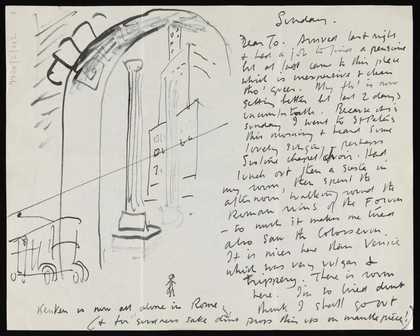 Sunday.
Dear Jo. Arrived last night
& had a job to find a pensione
but at last came to this place
which is inexpensive & clean
tho' queer. My 'flu' is now
getting better but last 2 days
uncomfortable. Because it's
Sunday I went to St Peters
this morning & heard some
lovely singing, perhaps
Sistine chapel choir. Had
lunch out then a siesta in
my room, then spent the
afternoon walking round the
Roman ruins of the Forum
- so much it makes one tired
also saw the Colosseum.
It is nicer here than Venice
which was very vulgar &
trippery. There is room
here. I'm so tired dont
think I shall go out.
Keuken is now all alone in Rome.
(& for goodness sake dont prop this up on mantlepiece!)